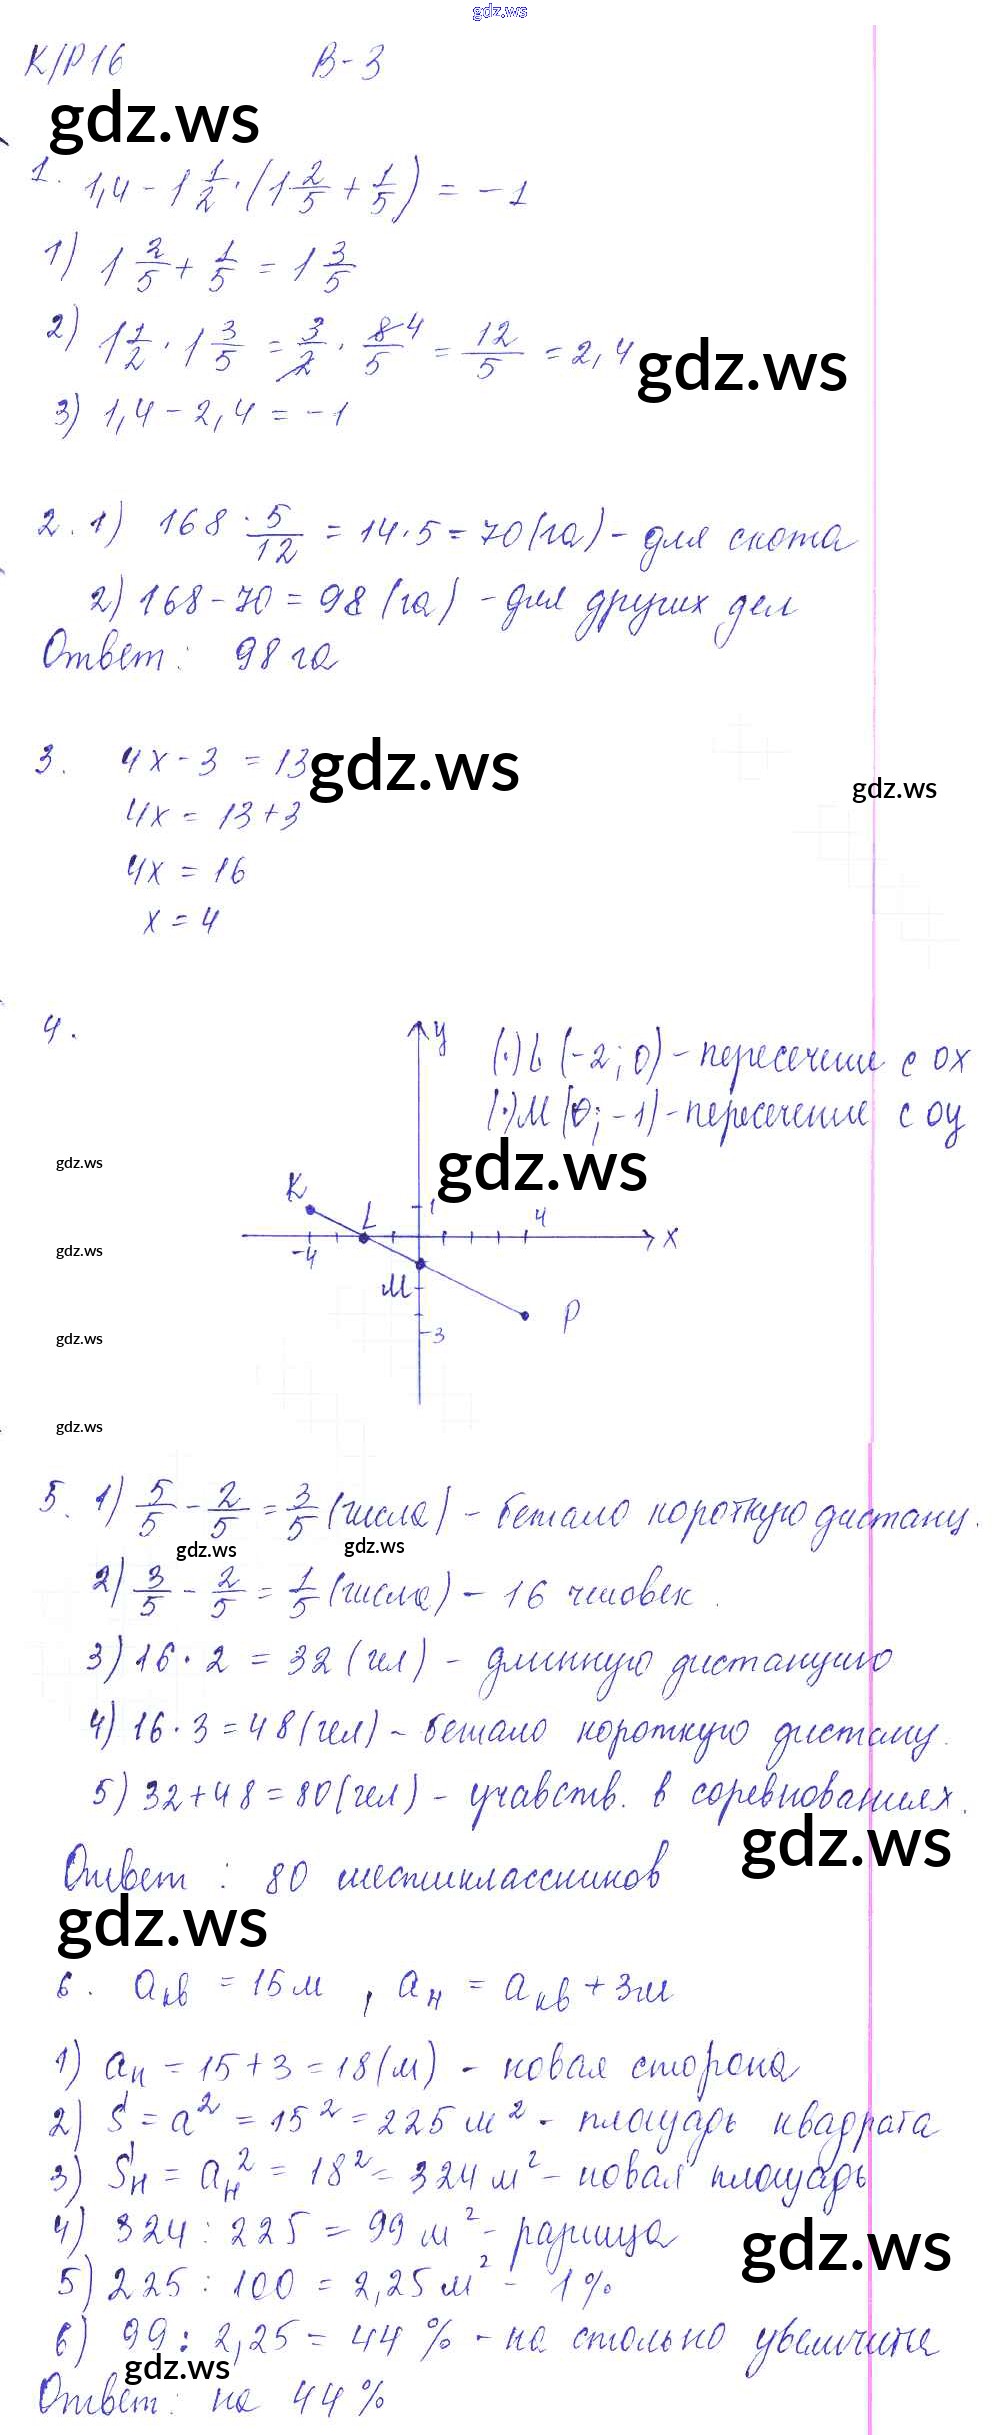 gdz.ws
К/Р16 В-3
gdz.ws
1. 1,4 - 1 1/2 · (1 2/5 + 1/5) = -1
1) 1 2/5 + 1/5 = 1 3/5
2) 1 1/2 · 1 3/5 = 3/2 · 8/5 4 = 12/5 = 2,4
gdz.ws
3) 1,4 - 2,4 = -1
2. 1) 168 · 5/12 = 14·5 = 70 (га) - для скота
2) 168 - 70 = 98 (га) - для других дел
Ответ: 98 га
3. 4x - 3 = 13
gdz.ws
gdz.ws
4x = 13+3
4x = 16
x = 4
4. y (·) L (-2; 0) - пересечение с ох
(·) М (0; -1) - пересечение с оу
gdz.ws
gdz.ws
К L 1 4 x
gdz.ws
-4
М
P
gdz.ws
-3
gdz.ws
5. 1) 5/5 - 2/5 = 3/5 (числа) - бежало короткую дистанц.
gdz.ws gdz.ws
2) 3/5 - 2/5 = 1/5 (числа) - 16 человек.
3) 16 · 2 = 32 (чел) - длинную дистанцию
4) 16 · 3 = 48 (чел) - бежало короткую дистанц.
5) 32 + 48 = 80 (чел) - учавств. в соревнованиях.
gdz.ws
Ответ: 80 шестиклассников
gdz.ws
6. aкв = 15 м, aн = aкв + 3м
1) aн = 15 + 3 = 18 (м) - новая сторона
2) S = a² = 15² = 225 м² - площадь квадрата
3) Sн = aн² = 18² = 324 м² - новая площадь
4) 324 : 225 = 99 м² - разница
gdz.ws
5) 225 : 100 = 2,25 м² - 1%
6) 99 : 2,25 = 44 % - на столько увеличите
gdz.ws
Ответ: на 44 %